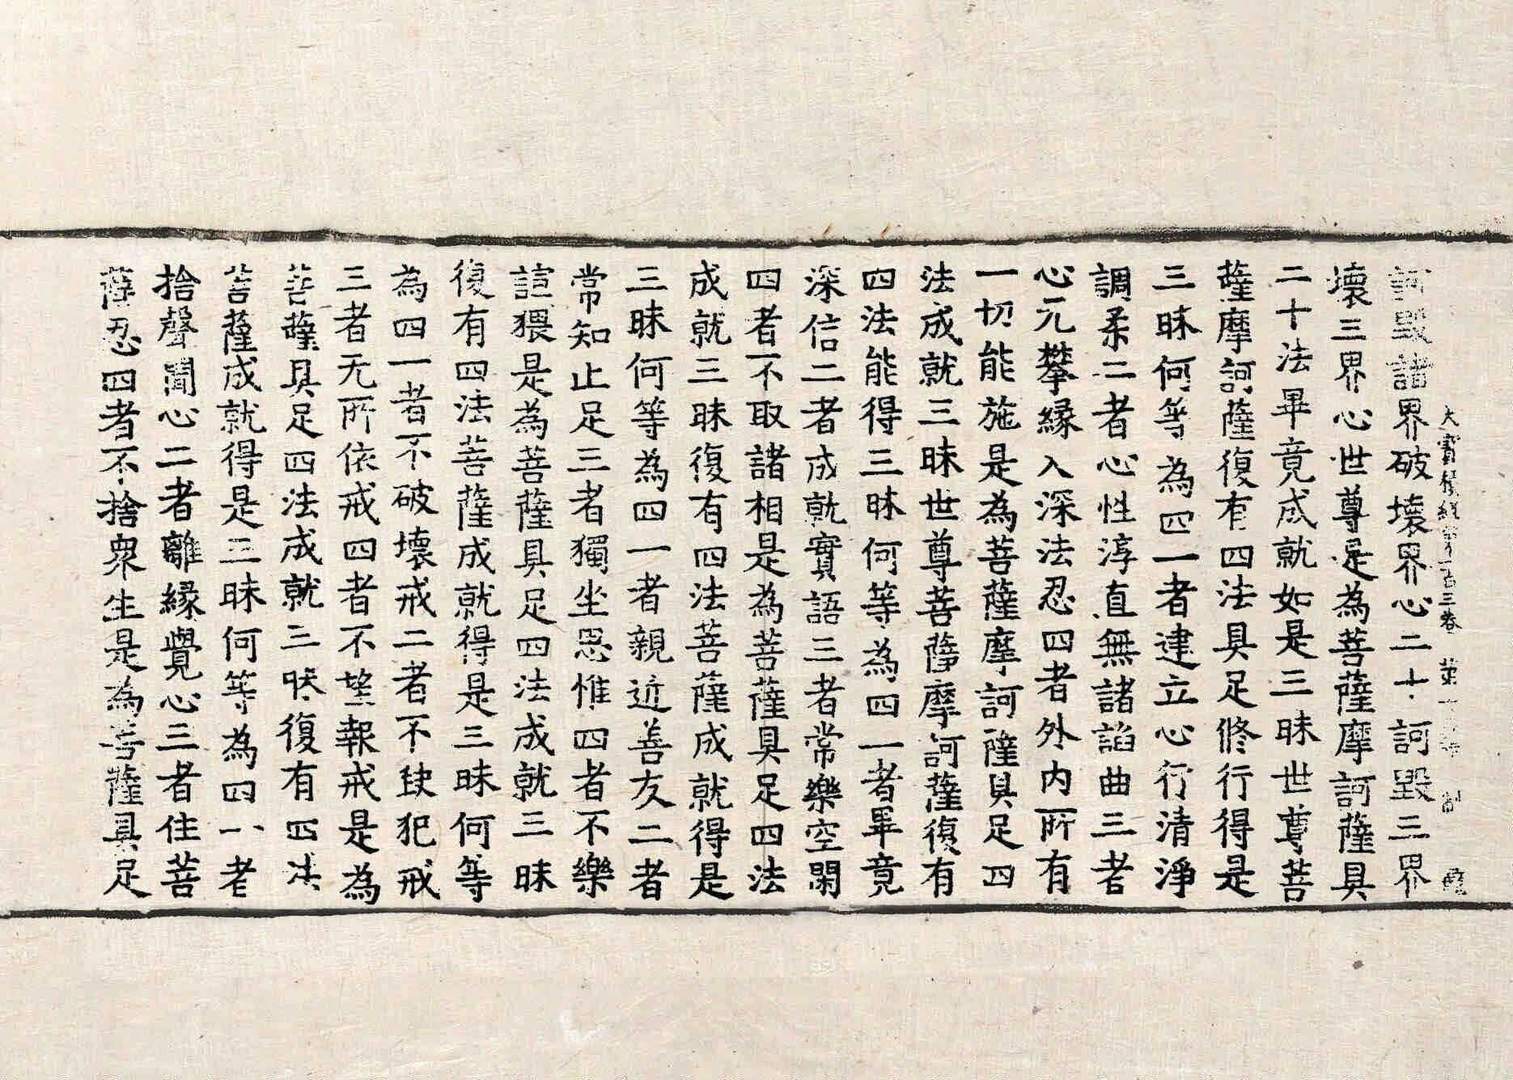 大寶積經第一百三卷 第十 制
訶毀諸界破壞界心二十訶毀三界
壞三界心世尊是為菩薩摩訶薩具
二十法畢竟成就如是三昧世尊菩
薩摩訶薩復有四法具足修行得是
三昧何等為四一者建立心行清淨
調柔二者心性淳直無諸諂曲三者
心无攀緣入深法忍四者外內所有
一切能施是為菩薩摩訶薩具足四
法成就三昧世尊菩薩摩訶薩復有
四法能得三昧何等為四一者畢竟
深信二者成就實語三者常樂空閑
四者不取諸相是為菩薩具足四法
成就三昧復有四法菩薩成就得是
三昧何等為四一者親近善友二者
常知止足三者獨坐思惟四者不樂
諠猥是為菩薩具足四法成就三昧
復有四法菩薩成就得是三昧何等
為四一者不破壞戒二者不缺犯戒
三者无所依戒四者不望報戒是為
菩薩具足四法成就三昧復有四法
菩薩成就得是三昧何等為四一者
捨聲聞心二者離緣覺心三者住菩
薩忍四者不捨衆生是為菩薩具足